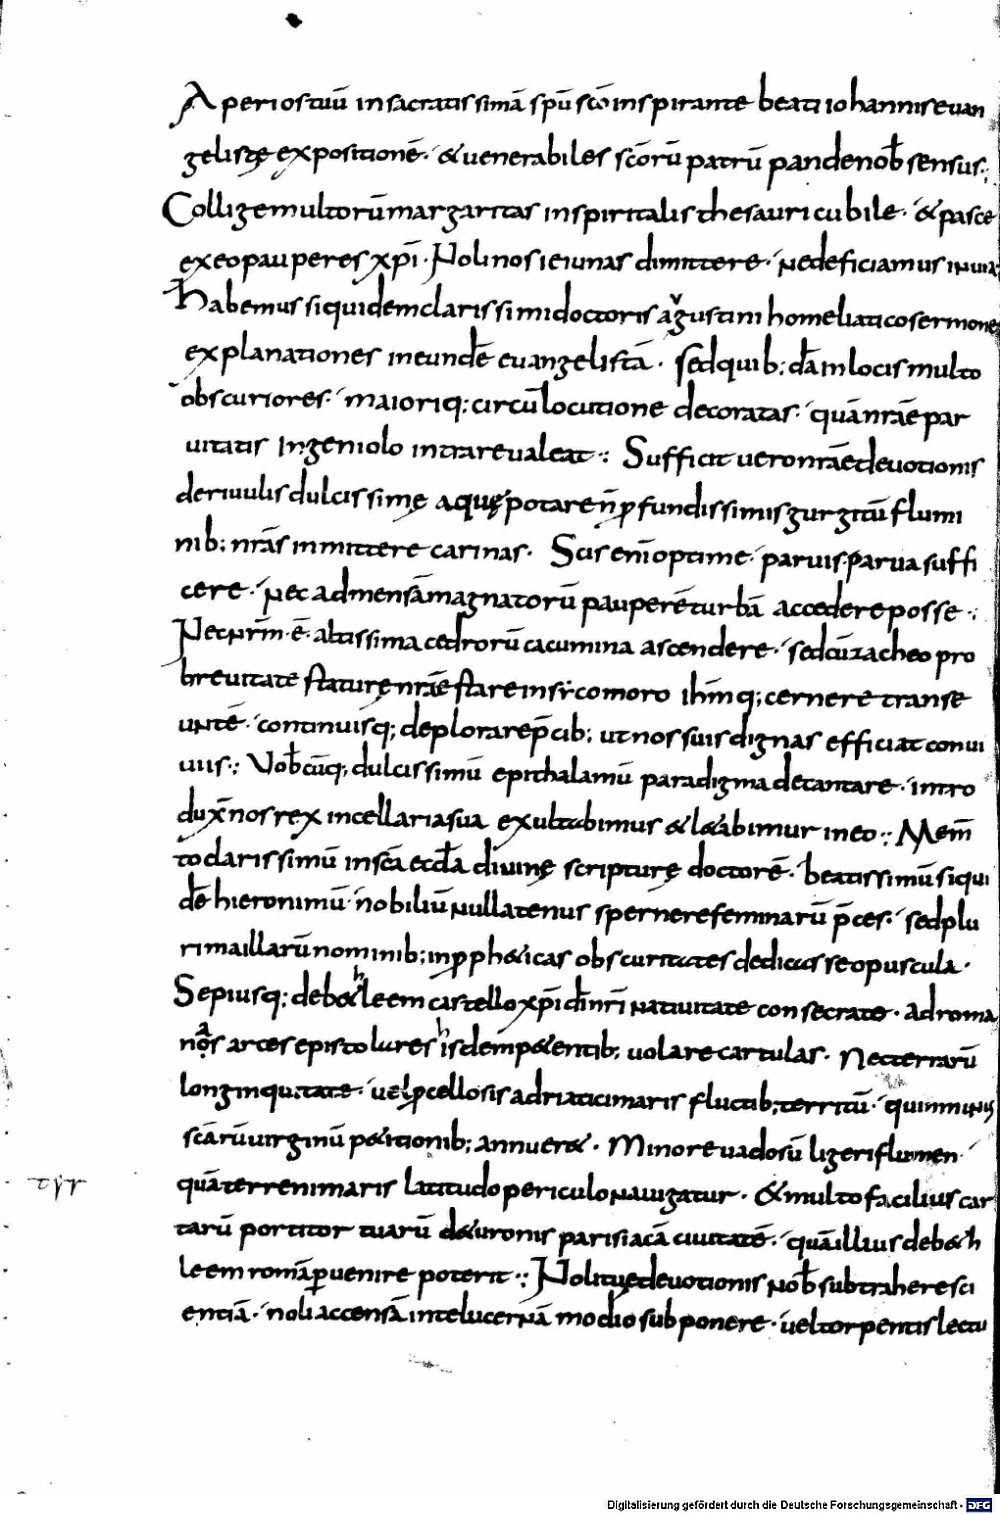 Aperi os tuũ in sacratissimã spũ scõ inspirante beati iohannis euan
gelistę expositionẽ. & uenerabiles scõrũ patrũ pande nob̄ sensus.
Collige multorũ margaritas in spiritalis thesauri cubile. & pasce
ex eo pauperes xp̄i. Noli nos ieiunas dimittere. ne deficiamus in uia
Habemus siquidem clarissimi doctoris aᵛgustini homeliatico sermone
explanationes in eundẽ euangelistã. sed quib; dā in locis multo
obscuriores. maioriq; circũlocutione decoratas. quā nrāe par
uitatis Ingeniolo intrare ualeat: Sufficit uero nrāe deuotionis
de riuulis dulcissimę aquę potare n̄ ꝓfundissimis gurgitũ flumi
nib; nrās inmittere carinas. Scis enī optime. paruis parua suffi
cere. nec ad mensã magnatorũ pauperẽ turbã accedere posse.
Nec nrm̄. ē. altissima cedrorũ cacumina ascendere. sed cũ zacheo pro
breuitate staturę nrāe stare in sycomoro ihm̄q; cernere transe
untẽ. continuisq; deplorare p̄cib; ut nos suis dignas efficiat conui
uiis: Vob̄cũq; dulcissimũ epithalamũ paradigma decantare. intro
dux̄ nos rex in cellaria sua exultabimus & l&abimur in eo: Mem̄
to clarissimũ in scā eccl̄a diuinę scripturę doctorẽ. beatissimũ siqui
dẽ hieronimũ nobiliũ nullatenus spernere feminarũ p̄ces. sed plu
rima illarũ nominib; in ꝓph&icas obscuritates dedicasse opuscula.
Sepiusq; de b&hleem castello xp̄i dī nr̄i natiuitate consecrato. ad roma
nᵃos arces epistolares hisdem p&entib; uolare cartulas. Nec terrarũ
longinquitate. uel ꝓcellosis adriatici maris fluctib; territũ. quin minus
scārũ uirginũ p&itionib; annuer&. Minore uadosũ ligeri flumen
quã terreni maris latitudo periculo nauigatur. & multo facilius car
tarũ portitor tuarũ d&uronis parisiacã ciuitatẽ. quã illius de b&h
leem romã ꝑuenire poterit: Noli tuę deuotionis nob̄ subtrahere sci
entiã. noli accensã in te lucernã modio subponere. uel torpentis lectu